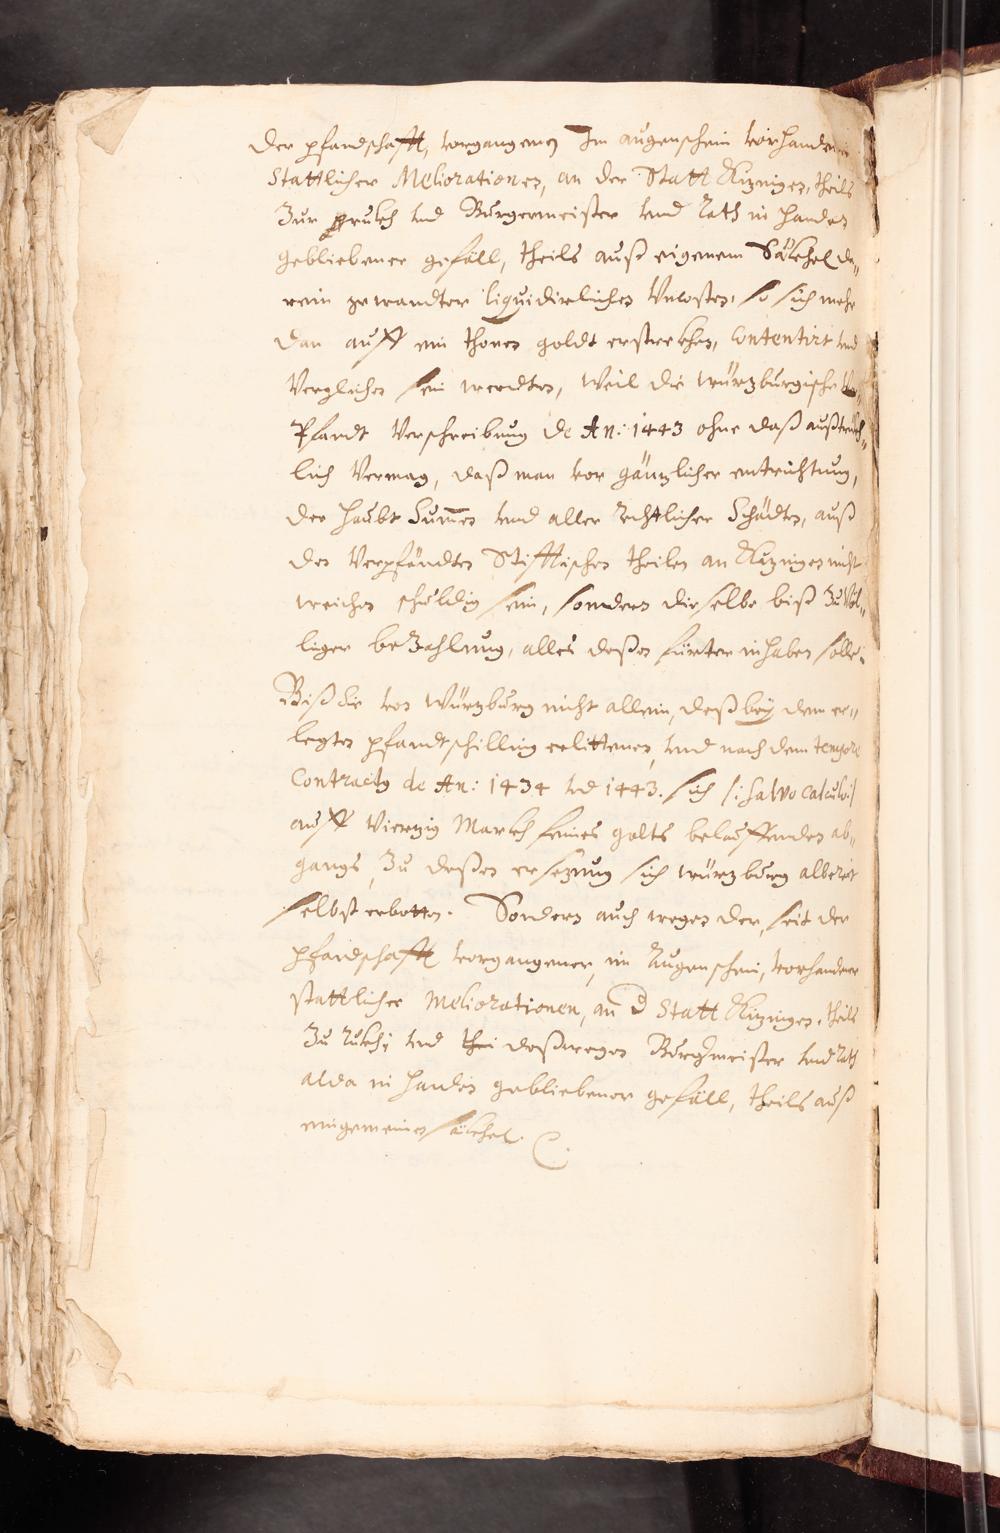 der pfandschafft, vorgangenen Im augenschein vorhandenen
Stattlicher Meliorationen, an der Statt Kizingen, theils
Zur prukh vnd Burgermeister vnd Rath in handen
gebliebener gefäll, theils auß eigenem Säkhel da„
rein gewandter liquidirlichen Vncosten, so sich mehr
dan auff ein thonen goldt erstrekhen, Contentirt vnd
Verglichen sein werdten, Weil die würtzburgische
Pfandt Verschreibung de An: 1443 ohne daß außtrükh„
lich Vermag, daß man vor gäntzlicher entrichtung,
der haubt Summen vnd aller rechtlicher Schädten, auß
den Verpfändten Stifftischen theilen an Kizingen nicht
weichen schuldig sein, sondern dieselbe biß Zu Völ„
liger beZahlung, alles deßen fürter inhaben solle.
Biß die von Würtzburg nicht allein, deß bey dem er„
legten pfandtschilling erlittenen, vnd nach dem tempore
Contractus de An: 1434 vnd 1443. sich /: salvo calculo:/
auff Vierzig Markh feines golts belauffenden ab„
gangs, Zu deßen ersezung sich würtzburg albereit
selbst erbotten. Sondern auch wegen der, seit der
pfandschafft vorgangener, im Augenschein, vorhandener
stattlicher Meliorationen, an d Statt Kitzingen, theils
Zu vnd deßwegen Burgermeister vnd Rath
alda in handen gebliebener gefäll, theils auß
eingemeinen säkhel.